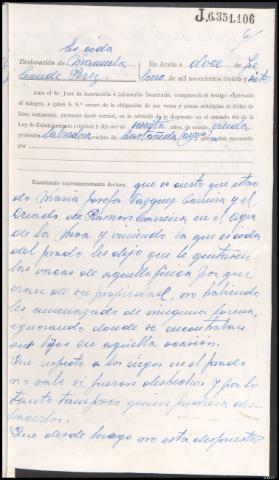 J.6351.106
Es oida
Declaración de Manuela
Conde Pérez
En Arzúa a doce de Fe
brero de mil novecientos treinta y siete
Ante el Sr. Juez de instrucción é infrascrito Secretario, comparece el testigo expresado
al margen, a quien S. S.ª enteró de la obligación de ser veraz y penas señaladas al delito de
falso testimonio, prometió decir verdad, se le advirtió lo dispuesto en el artículo 446 de la
Ley de Enjuiciamiento criminal y dijo ser de años, de estado viuda,
profesión labradora vecino de Castañeda y que no
por
Examinado convenientemente declara: que es cierto que estan
do María Josefa Vazquez Carreira y el
Criado de Ramon Carreira en el agra
de la Moa y viniendo la que es oida
del prado, les dijo que le quitasen
las vacas de aquella finca por que
eran de su propiedad, no habiendo
les amenazado de ninguna forma,
ignorando donde se encontraban
sus hijos en aquella ocasión.
Que respeto a los riegos en el prado
no sabe si fueron deshechos y por lo
tanto tampoco quien pudiera des
hacerlos.
Que desde luego no está dispuesta